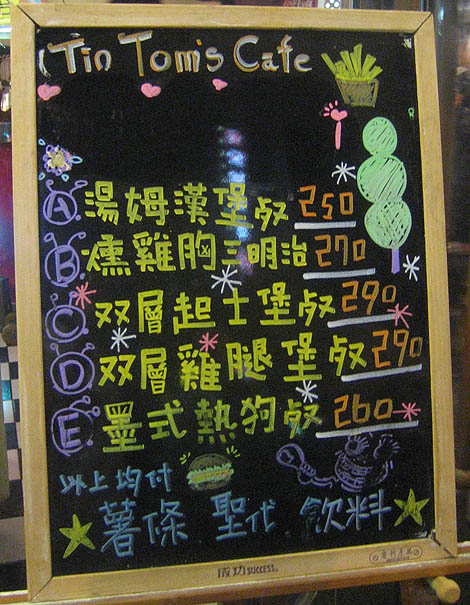 Tin Tom's Cafe
A 湯姆漢堡歺 250
B 燻雞胸三明治 270
C 双層起士堡歺 290
D 双層雞腿堡歺 290
E 墨式熱狗歺 260
以上均付
薯條 聖代 飲料
成功 SUCCESS